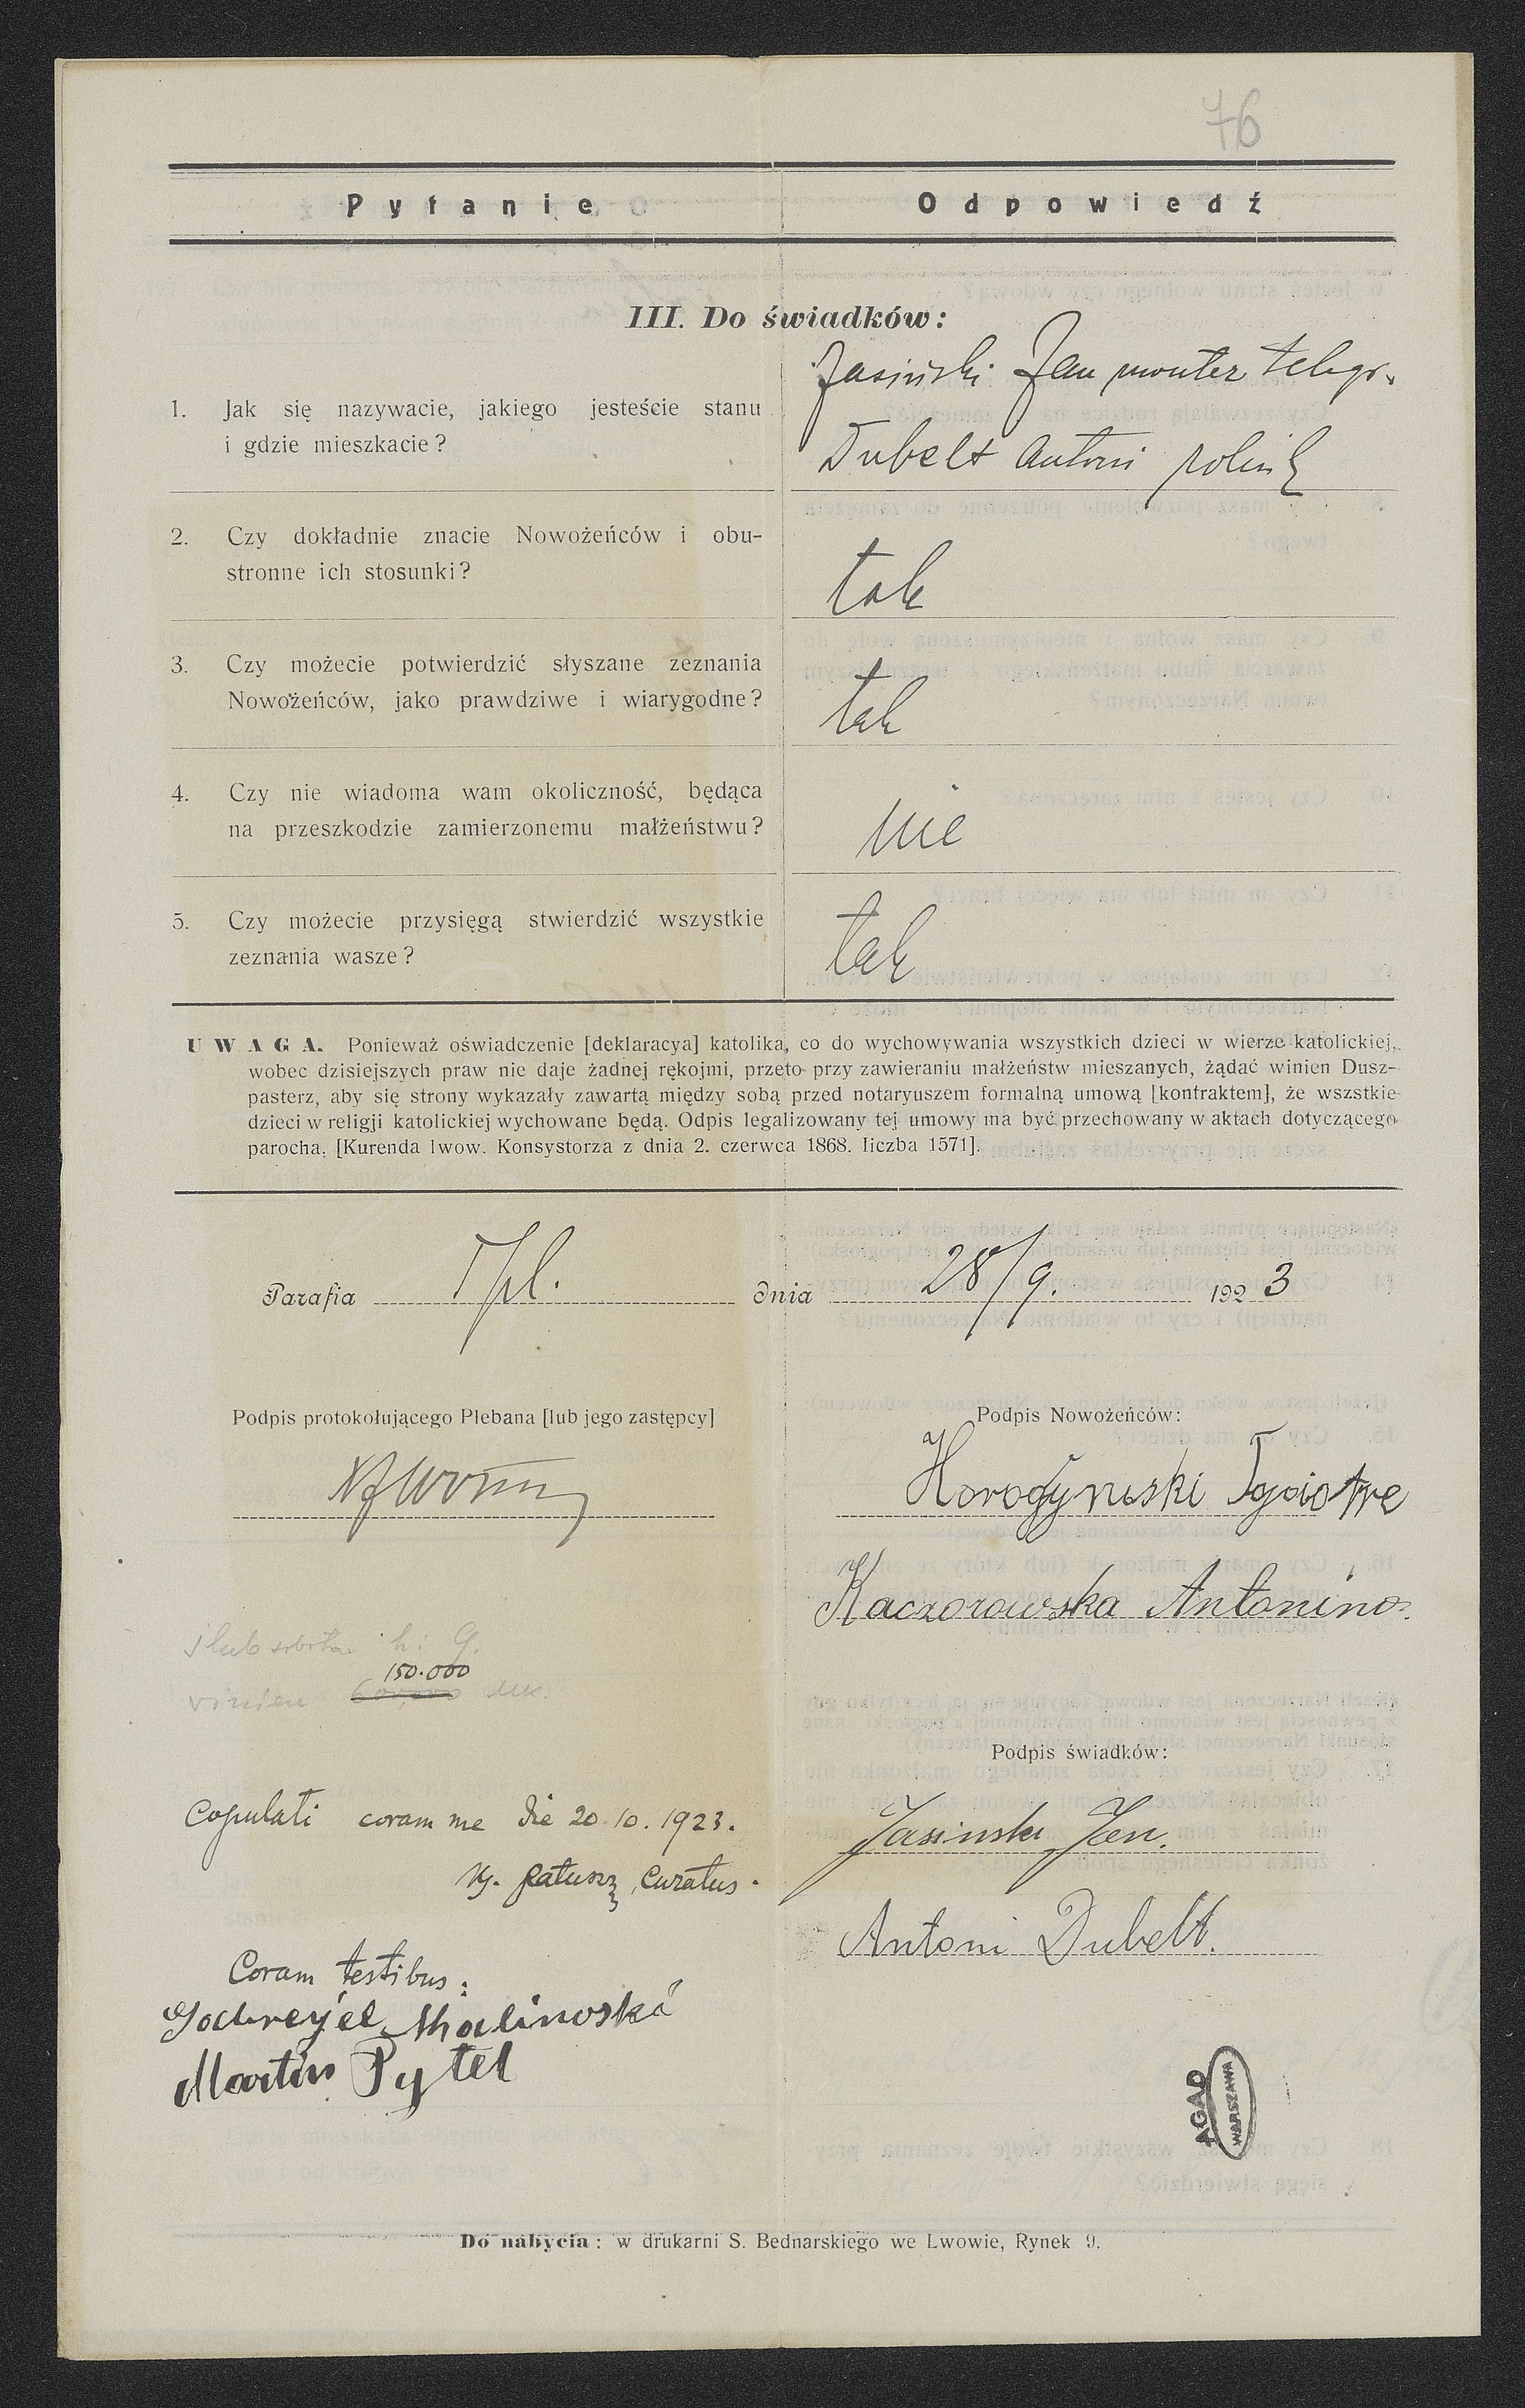 76
Pytanie Odpowiedź
III. Do świadków:
1. Jak się nazywacie, jakiego jesteście stanu
i gdzie mieszkacie?
Jasiński Jan monter telegr.
Dubelt Antoni
2. Czy dokładnie znacie Nowożeńców i obu-
stronne ich stosunki?
tak
3. Czy możecie potwierdzić słyszane zeznania
Nowożeńców, jako prawdziwe i wiarygodne?
tak
4. Czy nie wiadoma wam okoliczność, będąca
na przeszkodzie zamierzonemu małżeństwu?
nie
5. Czy możecie przysięgą stwierdzić wszystkie
zeznania wasze?
tak
UWAGA. Ponieważ oświadczenie [deklaracya] katolika, co do wychowywania wszystkich dzieci w wierze katolickiej,
wobec dzisiejszych praw nie daje żadnej rękojmi, przeto przy zawieraniu małżeństw mieszanych, żądać winien Dusz-
pasterz, aby się strony wykazały zawartą między sobą przed notaryuszem formalną umową [kontraktem], że wszstkie
dzieci w religji katolickiej wychowane będą. Odpis legalizowany tej umowy ma być przechowany w aktach dotyczącego
parocha. [Kurenda lwow. Konsystorza z dnia 2. czerwca 1868. liczba 1571].
Parafia Tpl. dnia 28/9. 1923
Podpis protokołującego Plebana [lub jego zastępcy]
Podpis Nowożeńców:
Kaczorowska Antonina
ślub sobota h: 9.
150.000
winien 600,000 Mk.
Podpis świadków:
Jasinski Jan.
Antoni Dubelt.
Copulati coram me die 20.10.1923.
Curatus.
Coram testibus:
Malinoski
Martin Pytel
AGAD
WARSZAWA
Do nabycia: w drukarni S. Bednarskiego we Lwowie, Rynek 9.